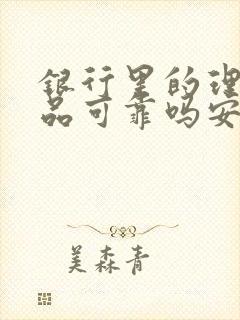 银行里的理
品可靠吗安
美森青